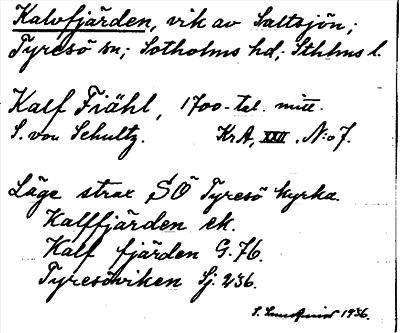 Kalvfjärden, vik av Saltsjön,;
Tyresö sn; Sotholms hd; Sthlms l.
Kalf Fiähl, 1700-tal. mitt.
S. von Schultz. KrA, XXII, N:o 7.
Läge strax SÖ Tyresö kyrka.
Kalffjärden ek.
Kalf fjärden G. 76.
Tyresöviken Sj. 236.
S. 1936.